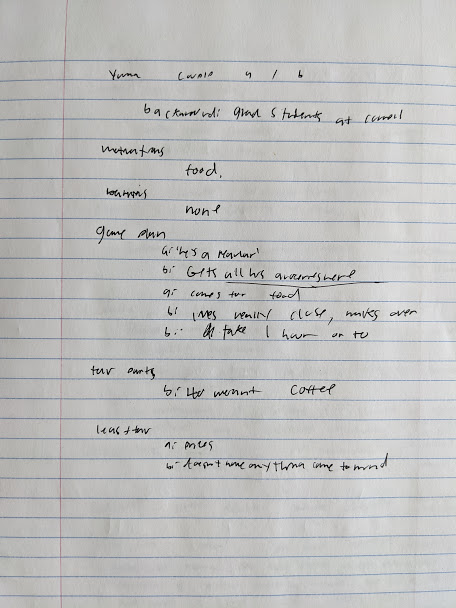 Yuma couple a / b
background: grad students at cornell
motivations
food.
barriers
none
game plan
a: he's a regular
b: Gets all his groceries here
a: comes for food
b: lives really close, walks over
b: take 1 hour or so
fav parts
b: coffee
least fav
a: prices
b: doesn't have anything come to mind